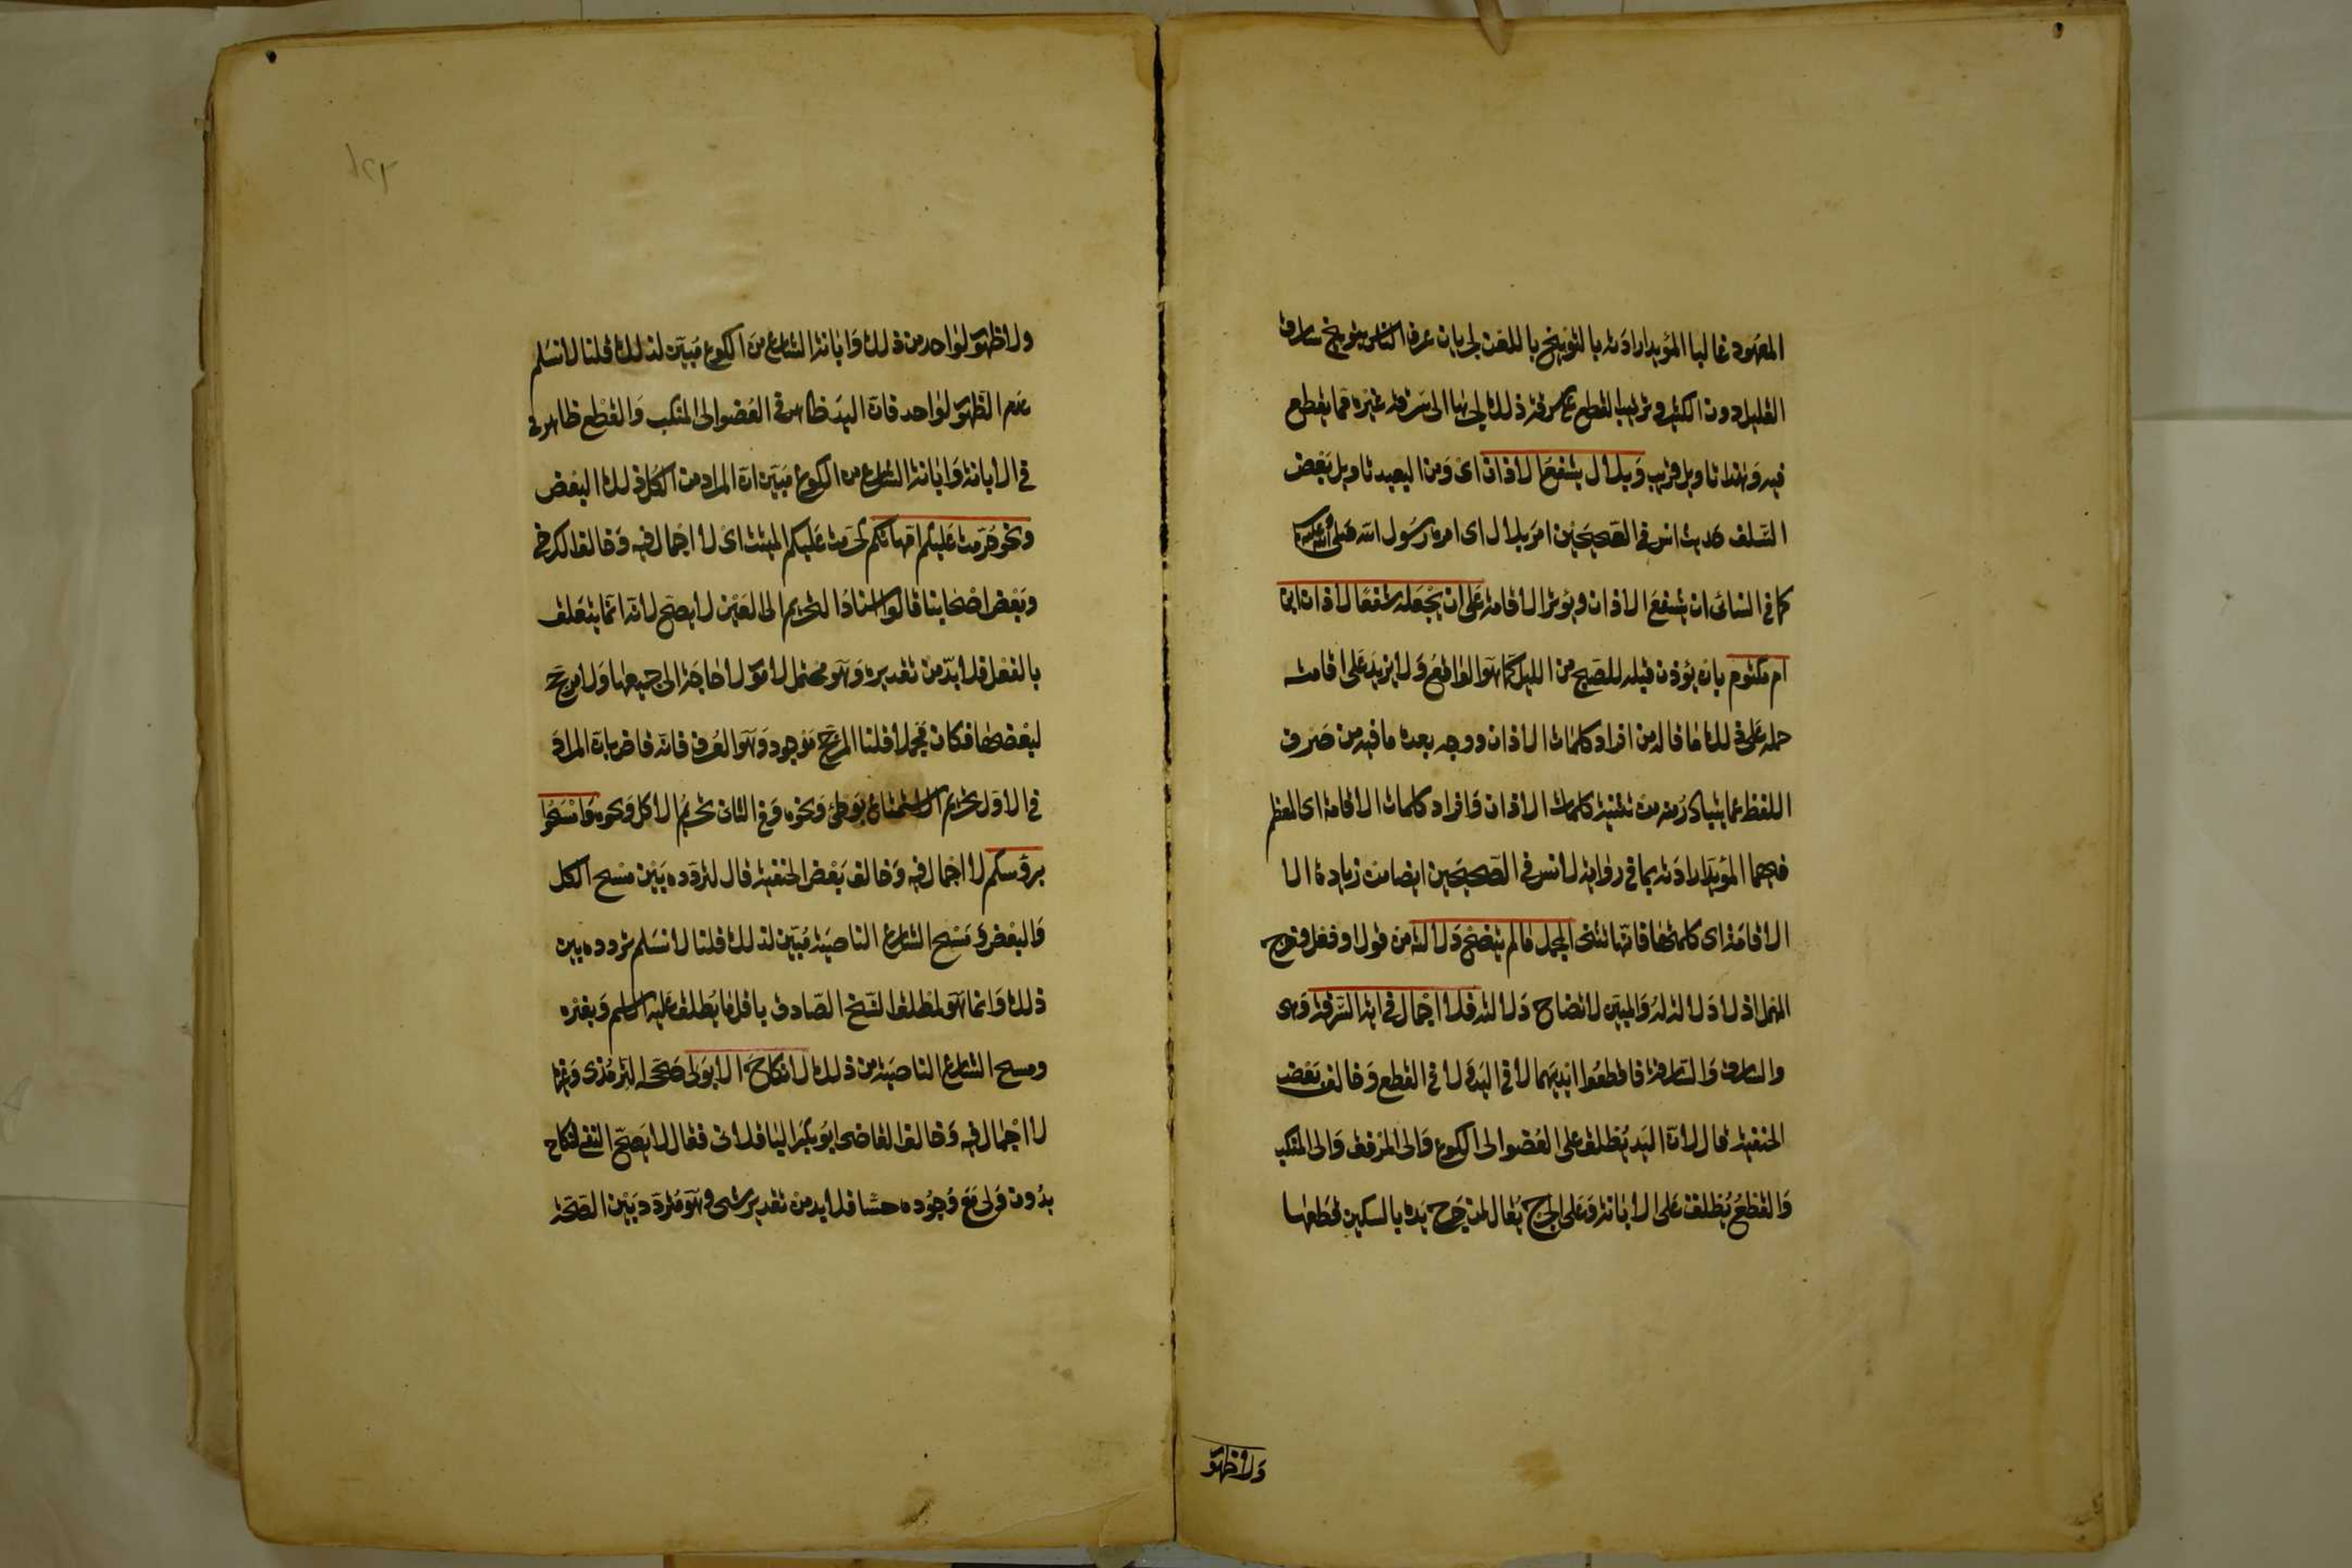 المعهود غالبا المؤيد ارادته بالتوبيخ باللعن لجريان عرف الناس بتوبيخ سارق
القليل دون الكثير وترتيب القطع على سرقة ذلك لجرها الى سرقة غيره مما يقطع
فيه وهذا تاويل قريب وبلال يشفع الاذان اى ومن البعيد تاويل بعض
السلف حديث انس في الصحيحين امر بلال اى امره رسول الله صلى الله عليه
كما في النسائى ان يشفع الاذان ويوتر الاقامة على ان يجعله شفعا لاذان ابن
ام مكتوم بان يؤذن قبله للصبح من الليل كما هو الواقع ولا يزيد على اقامته
حمله على ذلك ما قاله من افراد كلمات الاذان ووجه بعده ما فيه من صرف
اللفظ عما يتبادر منه من تثنية كلمات الاذان وافراد كلمات الاقامة اى المعظم
فيهما المؤيد ارادته بما في رواية لانس في الصحيحين ايضا من زيادة الا
الاقامة اى كلمتها فانها تثنى المجمل ما لم يتضح دلالته من قول او فعل وخرج
المهمل اذ لا دلالة له والمبين لاتضاح دلالته فلا اجمال في اية السرقة وهى
والسارق والسارقة فاقطعوا ايديهما لا في اليد ولا في القطع وخالف بعض
الحنفية قال لان اليد يطلق على العضو الى الكوع والى المرفق والى المنكب
والقطع يطلق على الابانة وعلى الجرح يقال لمن جرح يده بالسكين قطعها
ولا ظهور
ولا ظهور لواحد من ذلك وابانة الشارع من الكوع مبين لذلك قلنا لا نسلم
عدم الظهور لواحد فان اليد ظاهر في العضو الى المنكب والقطع ظاهر في
في الابانة وابانة الشارع من الكوع مبين ان المراد من الكل ذلك البعض
ونحو حرمت عليكم امهاتكم حرمت عليكم الميتة اى لا اجمال فيه وخالف الكرخي
وبعض اصحابنا قالوا اسناد التحريم الى العين لا يصح لانه انما يتعلق
بالفعل فلا بد من تقديره وهو محتمل لامور لا حاجة الى جميعها ولا مرجح
لبعضها فكان مجملا قلنا المرجح موجود وهو العرف فانه قاض بان المراد
في الاول تحريم الاستمتاع بوطئ ونحوه وفي الثاني تحريم الاكل ونحوه وامسحوا
برؤسكم لا اجمال فيه وخالف بعض الحنفية قال لتردده بين مسح الكل
والبعض ومسح الشارع الناصية مبين لذلك قلنا لا نسلم تردده بين
ذلك وانما هو لمطلق المسح الصادق باقل ما يطلق عليه الاسم وبغيره
ومسح الشارع الناصية من ذلك لا نكاح الا بولى صححه الترمذى وغيره
لا اجمال فيه وخالف القاضى ابو بكر الباقلانى فقال لا يصح النفي لنكاح
بدون ولى مع وجوده حسا فلا بد من تقدير شى وهو متردد بين الصحة